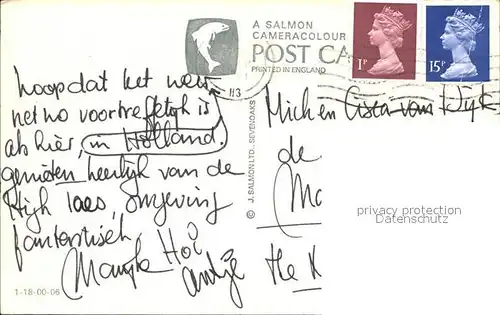 A SALMON
CAMERACOLOUR
POST CA
PRINTED IN ENGLAND
1P
15P
hoop dat het weer
net zo voortreffelijk is
als hier, in Holland.
genieten heerlijk van de
omgeving
fantastisch.
Hoi
Antje
© J. SALMON LTD., SEVENOAKS
Mich en Cisca van Dijk
de
Ma
the K
privacy protection
Datenschutz
1-18-00-06